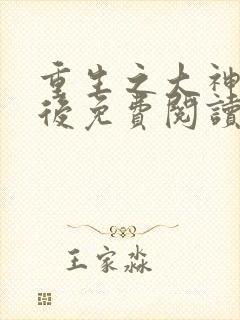 重生之大神
後免費閱讀
王家淼